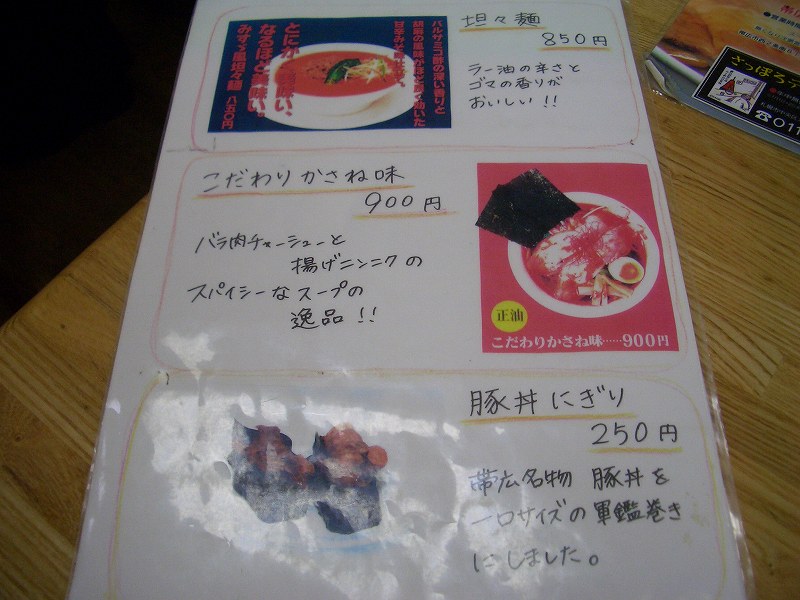 坦々麺
850円
ラー油の辛さと
ゴマの香りが
おいしい!!
バルサミコ酢の深い香りと
とにかく
なるほど
みすゞ風坦々麺 八五〇円
こだわりかさね味
900円
バラ肉チャーシューと
揚げニンニクの
スパイシーなスープの
逸品!!
正油
こだわりかさね味……900円
豚丼にぎり
250円
帯広名物 豚丼を
一口サイズの軍鑑巻き
にしました。
さっぽろ
☎011